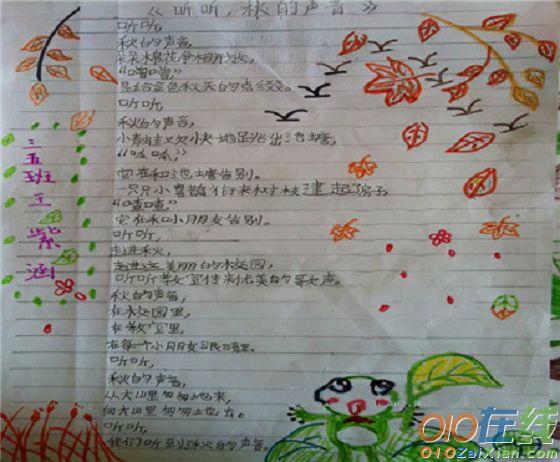 《听听，秋的声音》
听听，
秋的声音，
朵朵棉花争相开放，
“嘻嘻”
是给金色秋天的点缀。
听听，
秋的声音，
小青蛙欢快地跳出池塘，
“呱呱”，
它在和池塘告别。
一只只小喜鹊衔来和树枝建起房子
“喳喳”
它在和小朋友告别。
听听，
走进秋，
走进这美丽的校园，
听听教室传来优美的歌声。
秋的声音，
在校园里，
在教室里，
在每一个小朋友眼睛里。
听听，
秋的声音，
从大山里匆匆地来，
向大山里匆匆地去。
听听，
我们听到秋的声音。
三五班王紫涵
010在线
010ZaiXian.com